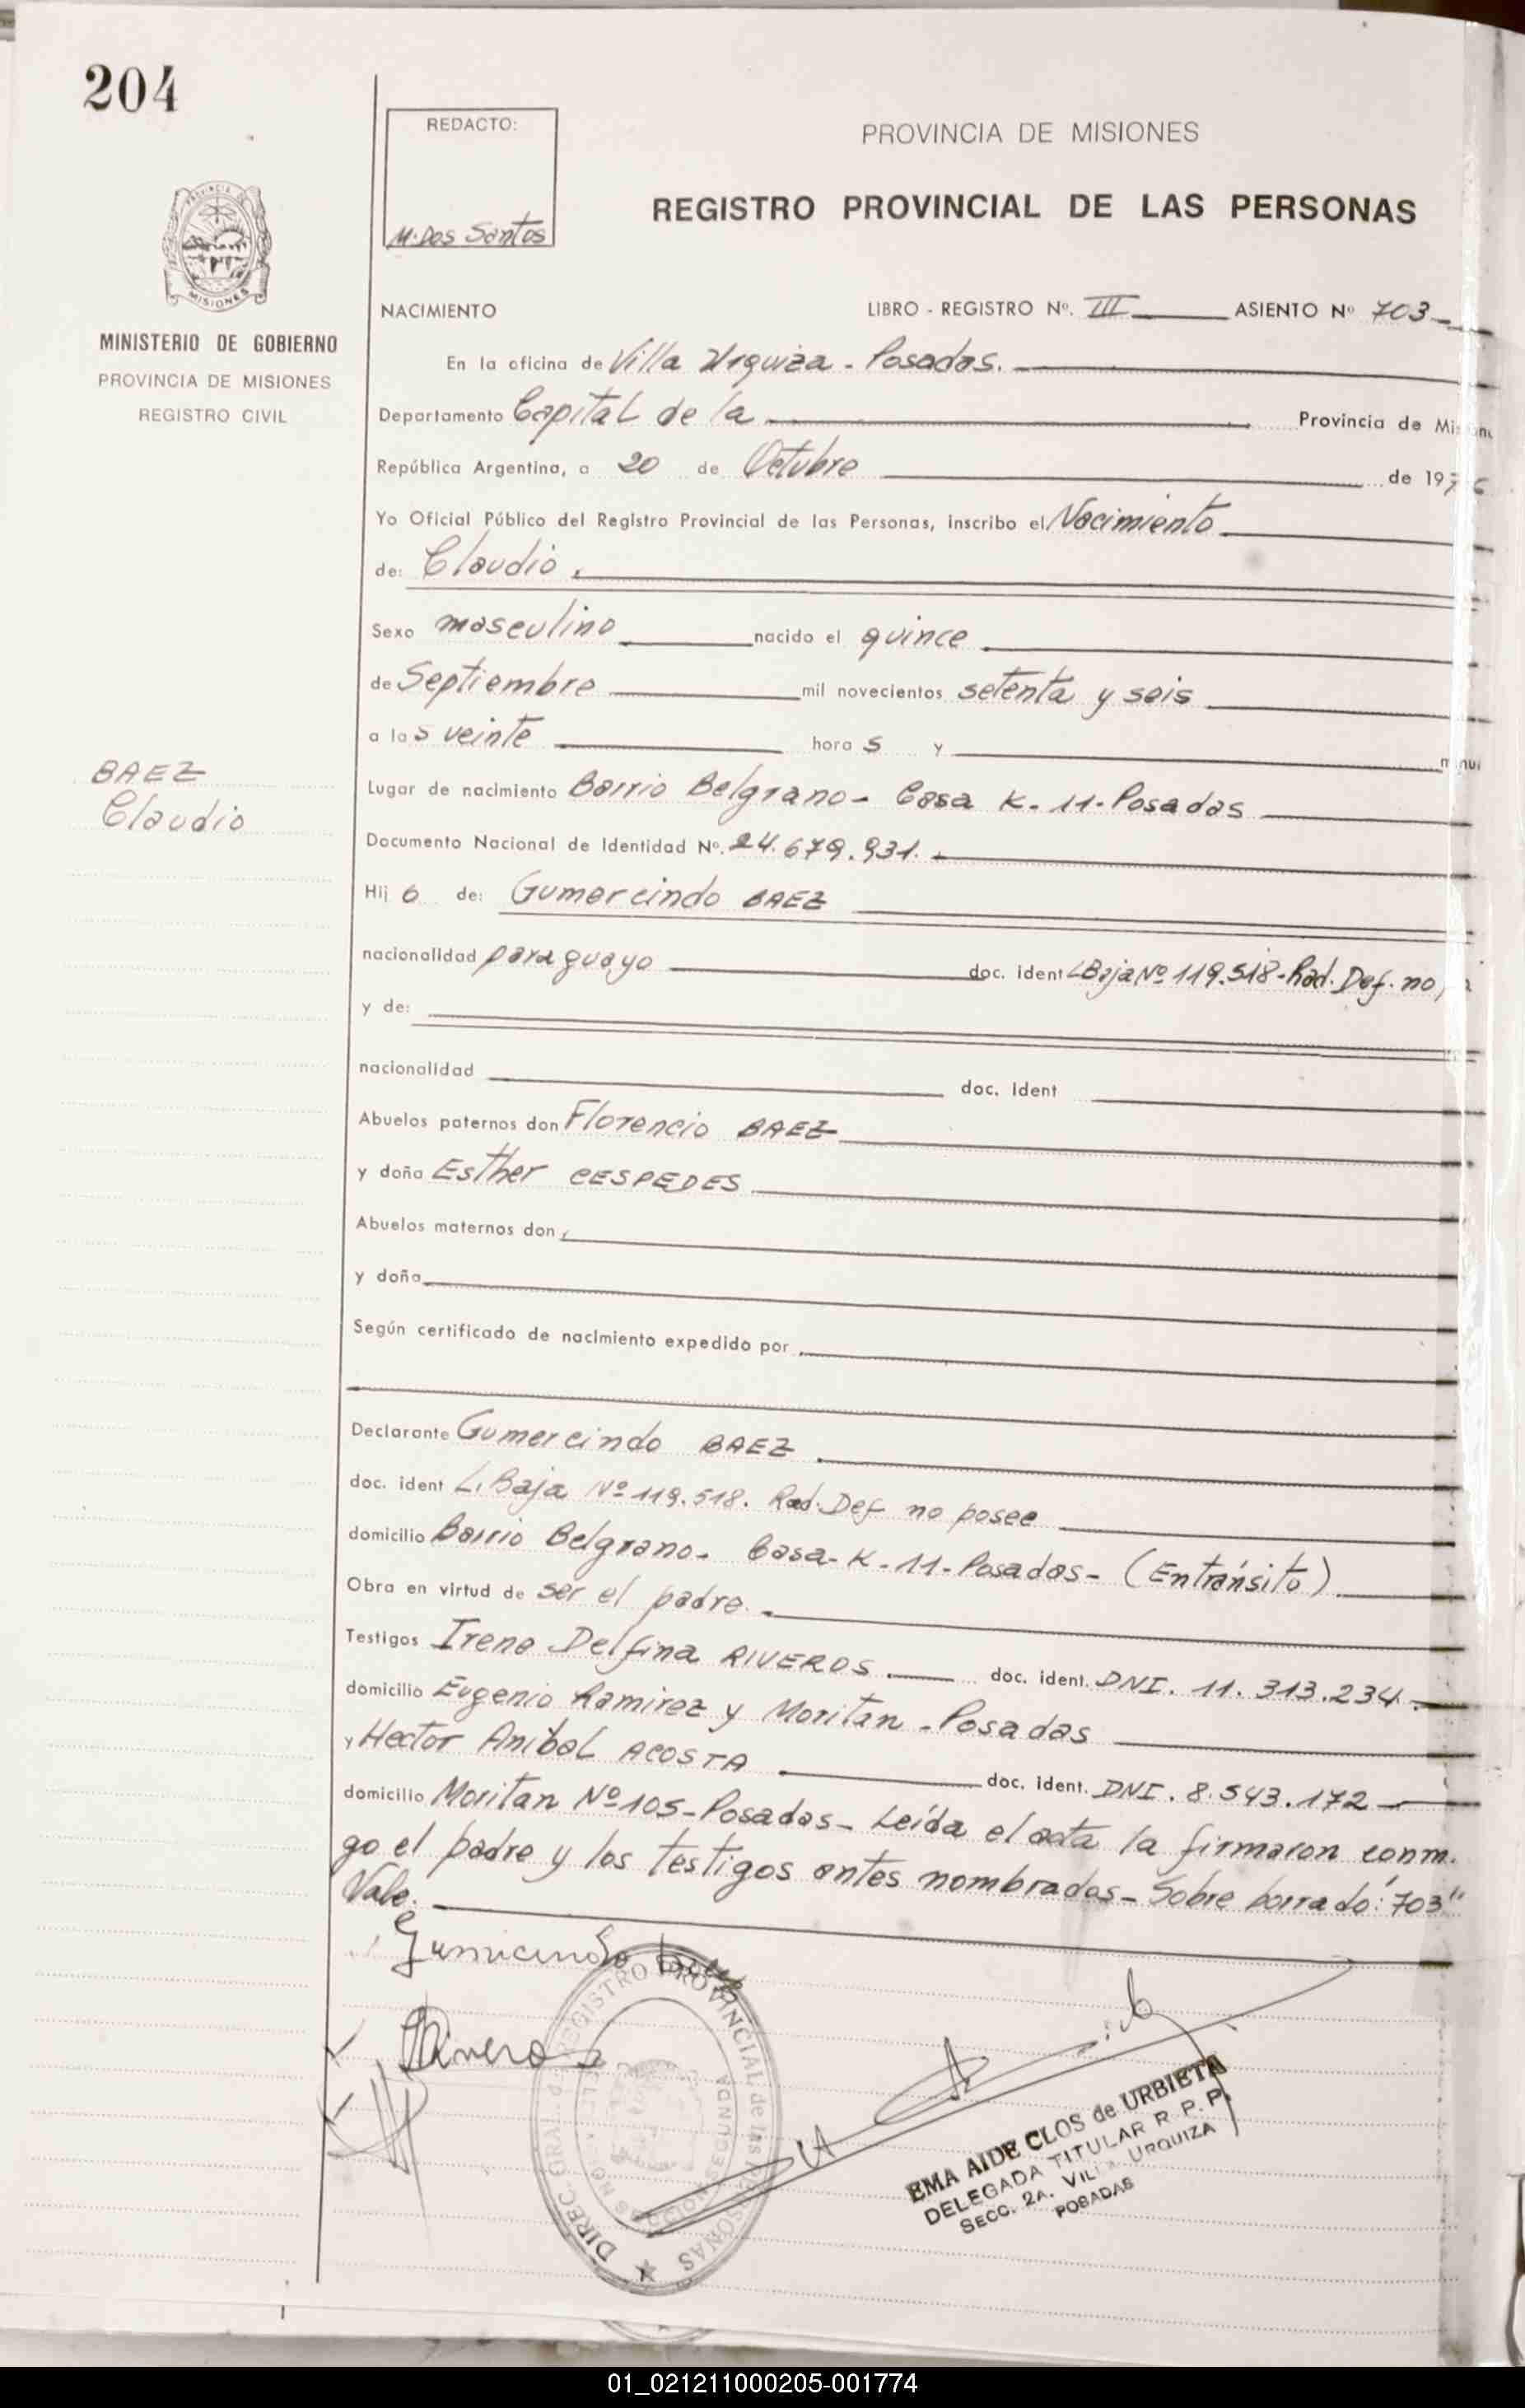 204
REDACTO:
M. Dos Santos
PROVINCIA DE MISIONES
REGISTRO PROVINCIAL DE LAS PERSONAS
PROVINCIA DE
MISIONES
MINISTERIO DE GOBIERNO
PROVINCIA DE MISIONES
REGISTRO CIVIL
NACIMIENTO LIBRO - REGISTRO Nº. III ASIENTO Nº 703-
En la oficina de Villa Urquiza - Posadas.
Departamento Capital de la Provincia de
República Argentina, a 20 de Octubre de 1976
Yo Oficial Público del Registro Provincial de las Personas, inscribo el Nacimiento
de: Claudio.
Sexo masculino nacido el quince
de Septiembre mil novecientos setenta y seis
a las veinte horas y
BAEZ
Claudio
Lugar de nacimiento Barrio Belgrano - Casa K - 11 - Posadas
Documento Nacional de Identidad Nº. 24.679.931.-
Hijo de: Gumercindo BAEZ
nacionalidad paraguayo doc. ident L Baja Nº 119.518 - Rad. Def. no
y de:
nacionalidad doc. ident
Abuelos paternos don Florencio BAEZ
y doña Esther CESPEDES
Abuelos maternos don
y doña
Según certificado de nacimiento expedido por
Declarante Gumercindo BAEZ
doc. ident L. Baja Nº 119.518. Rad. Def no posee
domicilio Barrio Belgrano - Casa - K - 11 - Posadas - (En tránsito)
Obra en virtud de ser el padre.-
Testigos Irene Delfina RIVEROS doc. ident. DNI. 11.313.234.
domicilio Eugenio Ramirez y Moritan - Posadas
y Hector Anibal ACOSTA doc. ident. DNI. 8.543.172
domicilio Moritan Nº 105 - Posadas - Leída el acta la firmaron conm.
go el padre y los testigos antes nombrados - Sobre borrado: "703"
Vale.
Gumicindo Baez
Riveros
DIREC. GRAL. de REGISTRO PROVINCIAL de las PERSONAS
SECCION SEGUNDA
EMA AIDE CLOS de URBIETA
DELEGADA TITULAR R. P. P.
SECC. 2A. VILLA URQUIZA
POSADAS
01_021211000205-001774